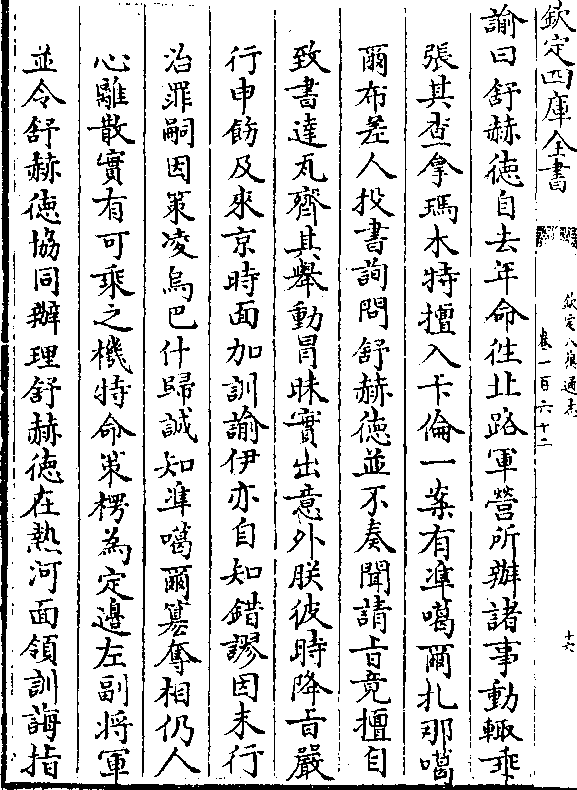 欽定四庫全書
欽定八旗通志
卷一百六十二
十六
諭曰舒赫徳自去年命徃北路軍營所辦諸事動輒乖
張其查拿瑪木特擅入卡倫一案有凖噶爾扎那噶
爾布差人投書詢問舒赫徳並不奏聞請㫖竟擅自
致書達瓦齊其舉動冐昧實出意外朕彼時降㫖嚴
行申飭及來京時面加訓諭伊亦自知錯謬因未行
治罪嗣因策凌烏巴什歸誠知凖噶爾簒奪相仍人
心離散實有可乘之機特命策楞為定邊左副將軍
並令舒赫徳協同辦理舒赫徳在熱河面領訓誨指